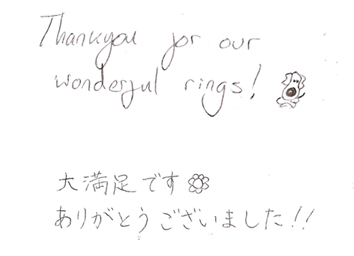 Thankyou for our
wonderful rings!
大満足です
ありがとうございました!!